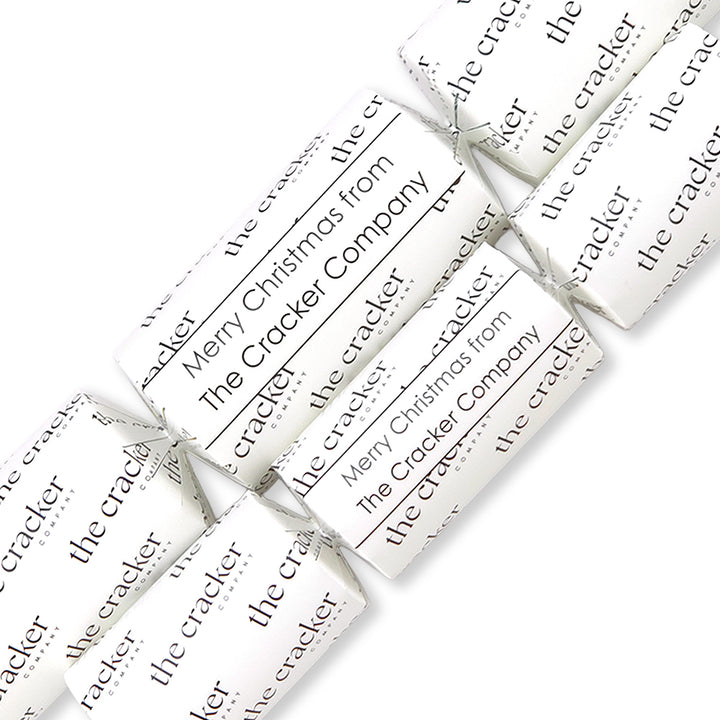 Merry Christmas from
The Cracker Company
Merry Christmas from
The Cracker Company
the cracker
COMPANY
the cracker
COMPANY
the cracker
COMPANY
the cracker
COMPANY
the cracker
COMPANY
the cracker
COMPANY
the cracker
COMPANY
the cracker
COMPANY
the cracker
COMPANY
the cracker
COMPANY
the cracker
COMPANY
the cracker
COMPANY